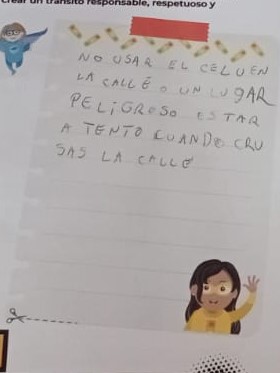 crear un tránsito responsable, respetuoso y
NO USAR EL CELUEN
LA CALLÉ O UN LUGAR
PELIGROSO ESTAR
A TENTO CUANDO CRU
SAS LA CALLE